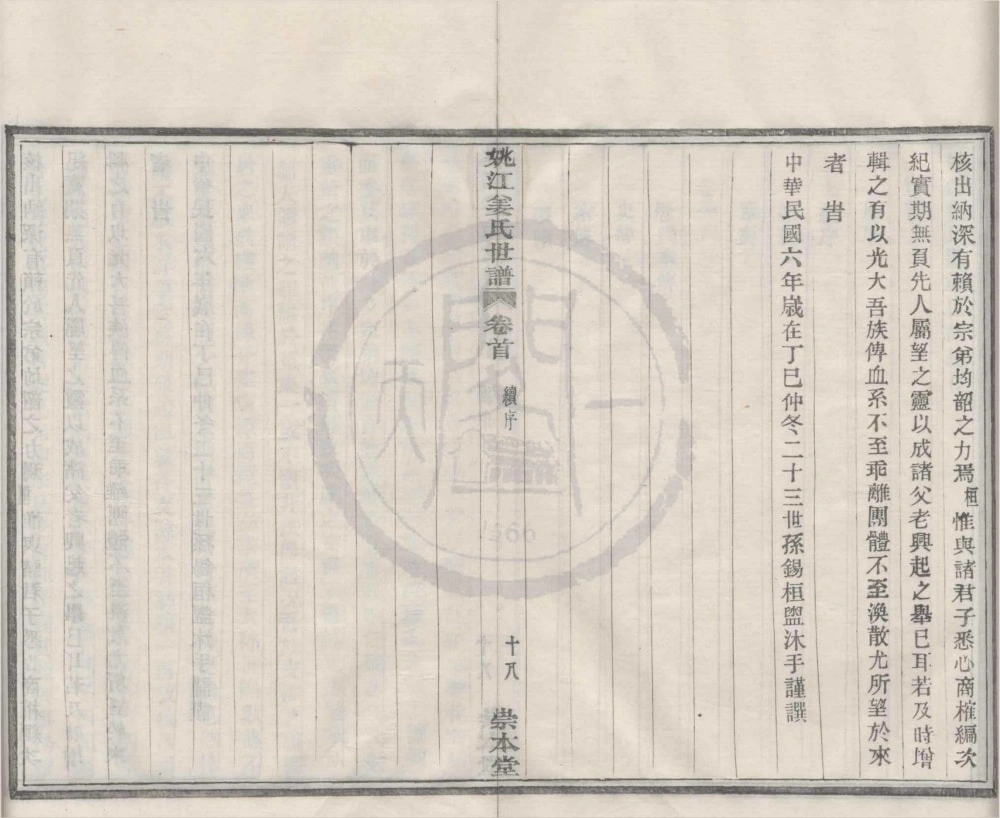 核出納深有賴於宗弟均韶之力焉桓惟與諸君子悉心商榷編次
紀實期無負先人屬望之靈以成諸父老興起之舉已耳若及時增
輯之有以光大吾族俾血系不至乖離團體不至渙散尤所望於來
者旹
中華民國六年歲在丁巳仲冬二十三世孫錫桓盥沐手謹譔
姚江姜氏世譜 卷首 續序 十八 崇本堂
1960